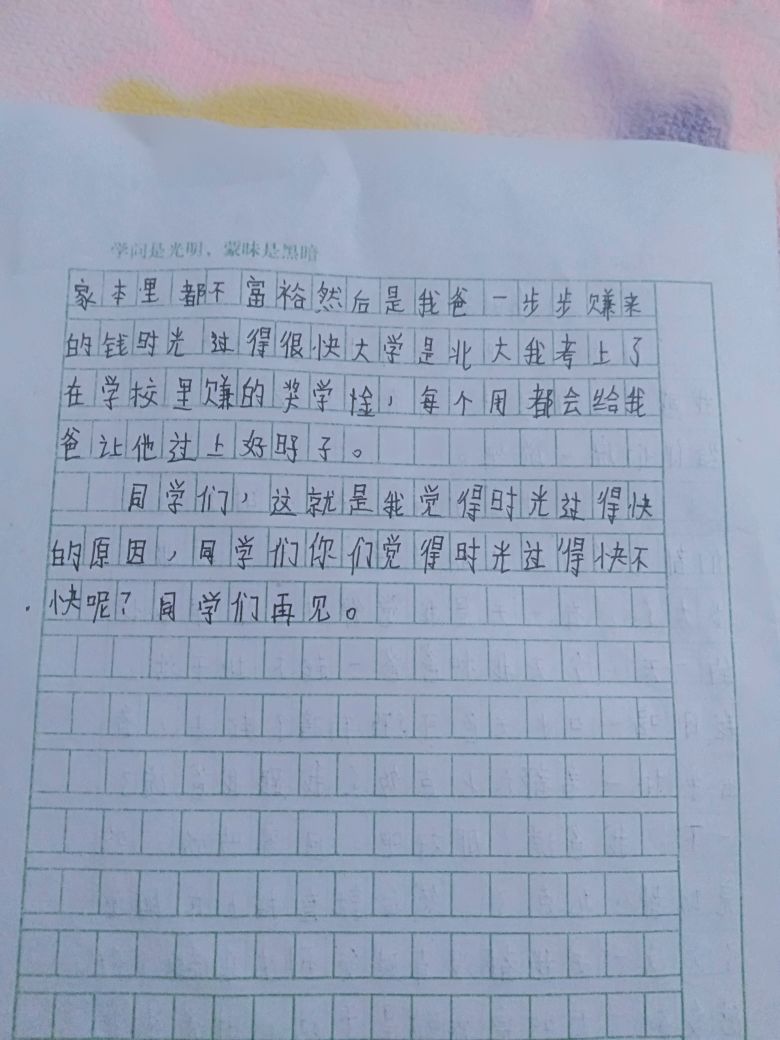 学问是光明，蒙昧是黑暗
家本里都不富裕然后是我爸一步步赚来
的钱时光过得很快大学是北大我考上了
在学校里赚的奖学金，每个周都会给我
爸让他过上好日子。
同学们，这就是我觉得时光过得快
的原因，同学们你们觉得时光过得快不
快呢？同学们再见。